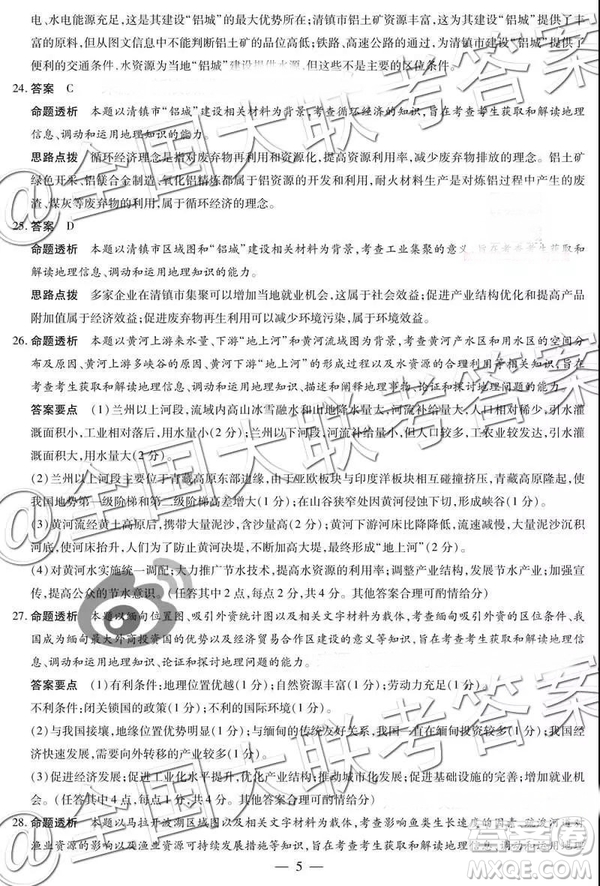 电、水电能源充足，这是其建设“铝城”的最大优势所在；清镇市铝土矿资源丰富，
但从图文信息中不能判断铝土矿的品位高低；铁路、高速公路的通过，为清镇市建设“铝城”提供了
便利的交通条件，水资源为当地“铝城”建设提供水源，但不是主要的区位条件。
24. 答案 C
命题透析 本题以清镇市“铝城”建设相关材料为背景，考查循环经济的知识，旨在考查考生获取和解读地理
信息、调动和运用地理知识的能力。
思路点拨 循环经济理念是指对废弃物再利用和利用，提高资源利用率，减少废弃物排放的理念。铝土矿
绿色开采、铝镁合金制造、氧化铝精炼都属于铝资源的开发和利用，耐火材料生产属于对炼铝过程中产生的废
渣、煤灰等废弃物的利用，属于循环经济的理念。
25. 答案 D
命题透析 本题以清镇市区域图和“铝城”建设相关材料为背景，考查工业集聚的意义，旨在考查考生获取和
解读地理信息、调动和运用地理知识的能力。
思路点拨 多家企业在清镇市集聚可以增加当地就业机会，这属于社会效益；促进产业结构优化和提高产品
附加值属于经济效益；促进废弃物再利用可以减少环境污染，属于环境效益。
26. 命题透析 本题以黄河上游来水量、下游“地上河”和黄河流域图为背景，考查黄河产水区和用水区的空间分
布及原因、黄河上游多峡谷的原因、黄河下游“地上河”的形成过程以及水资源的合理利用等相关知识，旨在
考查考生获取和解读地理信息、调动和运用地理知识、描述和阐释地理事物、论证和探讨地理问题的能力。
答案要点 (1)兰州以上河段，流域内高山冰雪融水和山地降水量大，河流补给量大，人口相对稀少，引水灌
溉面积小，工业相对落后，用水量小(2分)；兰州以下河段，降水少，河流补给量小，人口较多，引水灌
溉面积大，工农业较发达，用水量大(2分)。
(2)兰州以上河段主要位于青藏高原东部边缘，由亚欧板块与印度洋板块相互碰撞挤压，青藏高原隆起，使
我国地势第一级阶梯和第二级阶梯高差增大(1分)；在山谷狭窄处因黄河侵蚀下切，形成峡谷(1分)。
(3)黄河流经黄土高原后，携带大量泥沙，含沙量高(2分)；黄河下游河床比降降低，流速减慢，大量泥沙沉积
河底，使河床抬升，人们为了防止黄河决堤，不断加高大堤，从而形成黄河“地上河”(2分)。
(4)对黄河水实施统一调配；大力推广节水技术，提高水资源利用率；调整产业结构，发展节水产业；
提高公众的节水意识。(任答其中2点，每点2分，共4分。其他答案合理可酌情给分)
27. 命题透析 本题以缅甸位置图、吸引外资统计图以及相关文字材料为载体，考查缅甸吸引外资的区位条件、我
国成为缅甸最大外商投资国的优势以及经济贸易合作区建设的意义等知识，旨在考查考生获取和解读地理信息、
调动和运用地理知识、论证和探讨地理问题的能力。
答案要点 (1)有利条件：地理位置优越(1分)；自然资源丰富(1分)；劳动力充足(1分)。
不利条件：闭关锁国的政策(1分)；经济发展水平较低(1分)。
(2)与我国接壤，地缘位置优势明显(1分)；与缅甸的传统友好关系，我国一直在缅甸投资较多(2分)；我国经
济快速发展，需要向外转移的产业较多(2分)。
(3)促进经济发展；促进工业化水平提升，优化产业结构；推动城市化发展；促进基础设施的完善；增加就业
机会。(任答其中4点，每点1分，共4分。其他答案合理可酌情给分)
28. 命题透析 本题以马拉开波湖区域图以及相关文字材料为载体，考查影响鱼类生长速度的因素、疏浚河道对
渔业资源的影响以及渔业资源可持续发展措施等相关知识，旨在考查考生获取和解读地理信息、调动和运用地理
— 5 —
@全国大联考答案